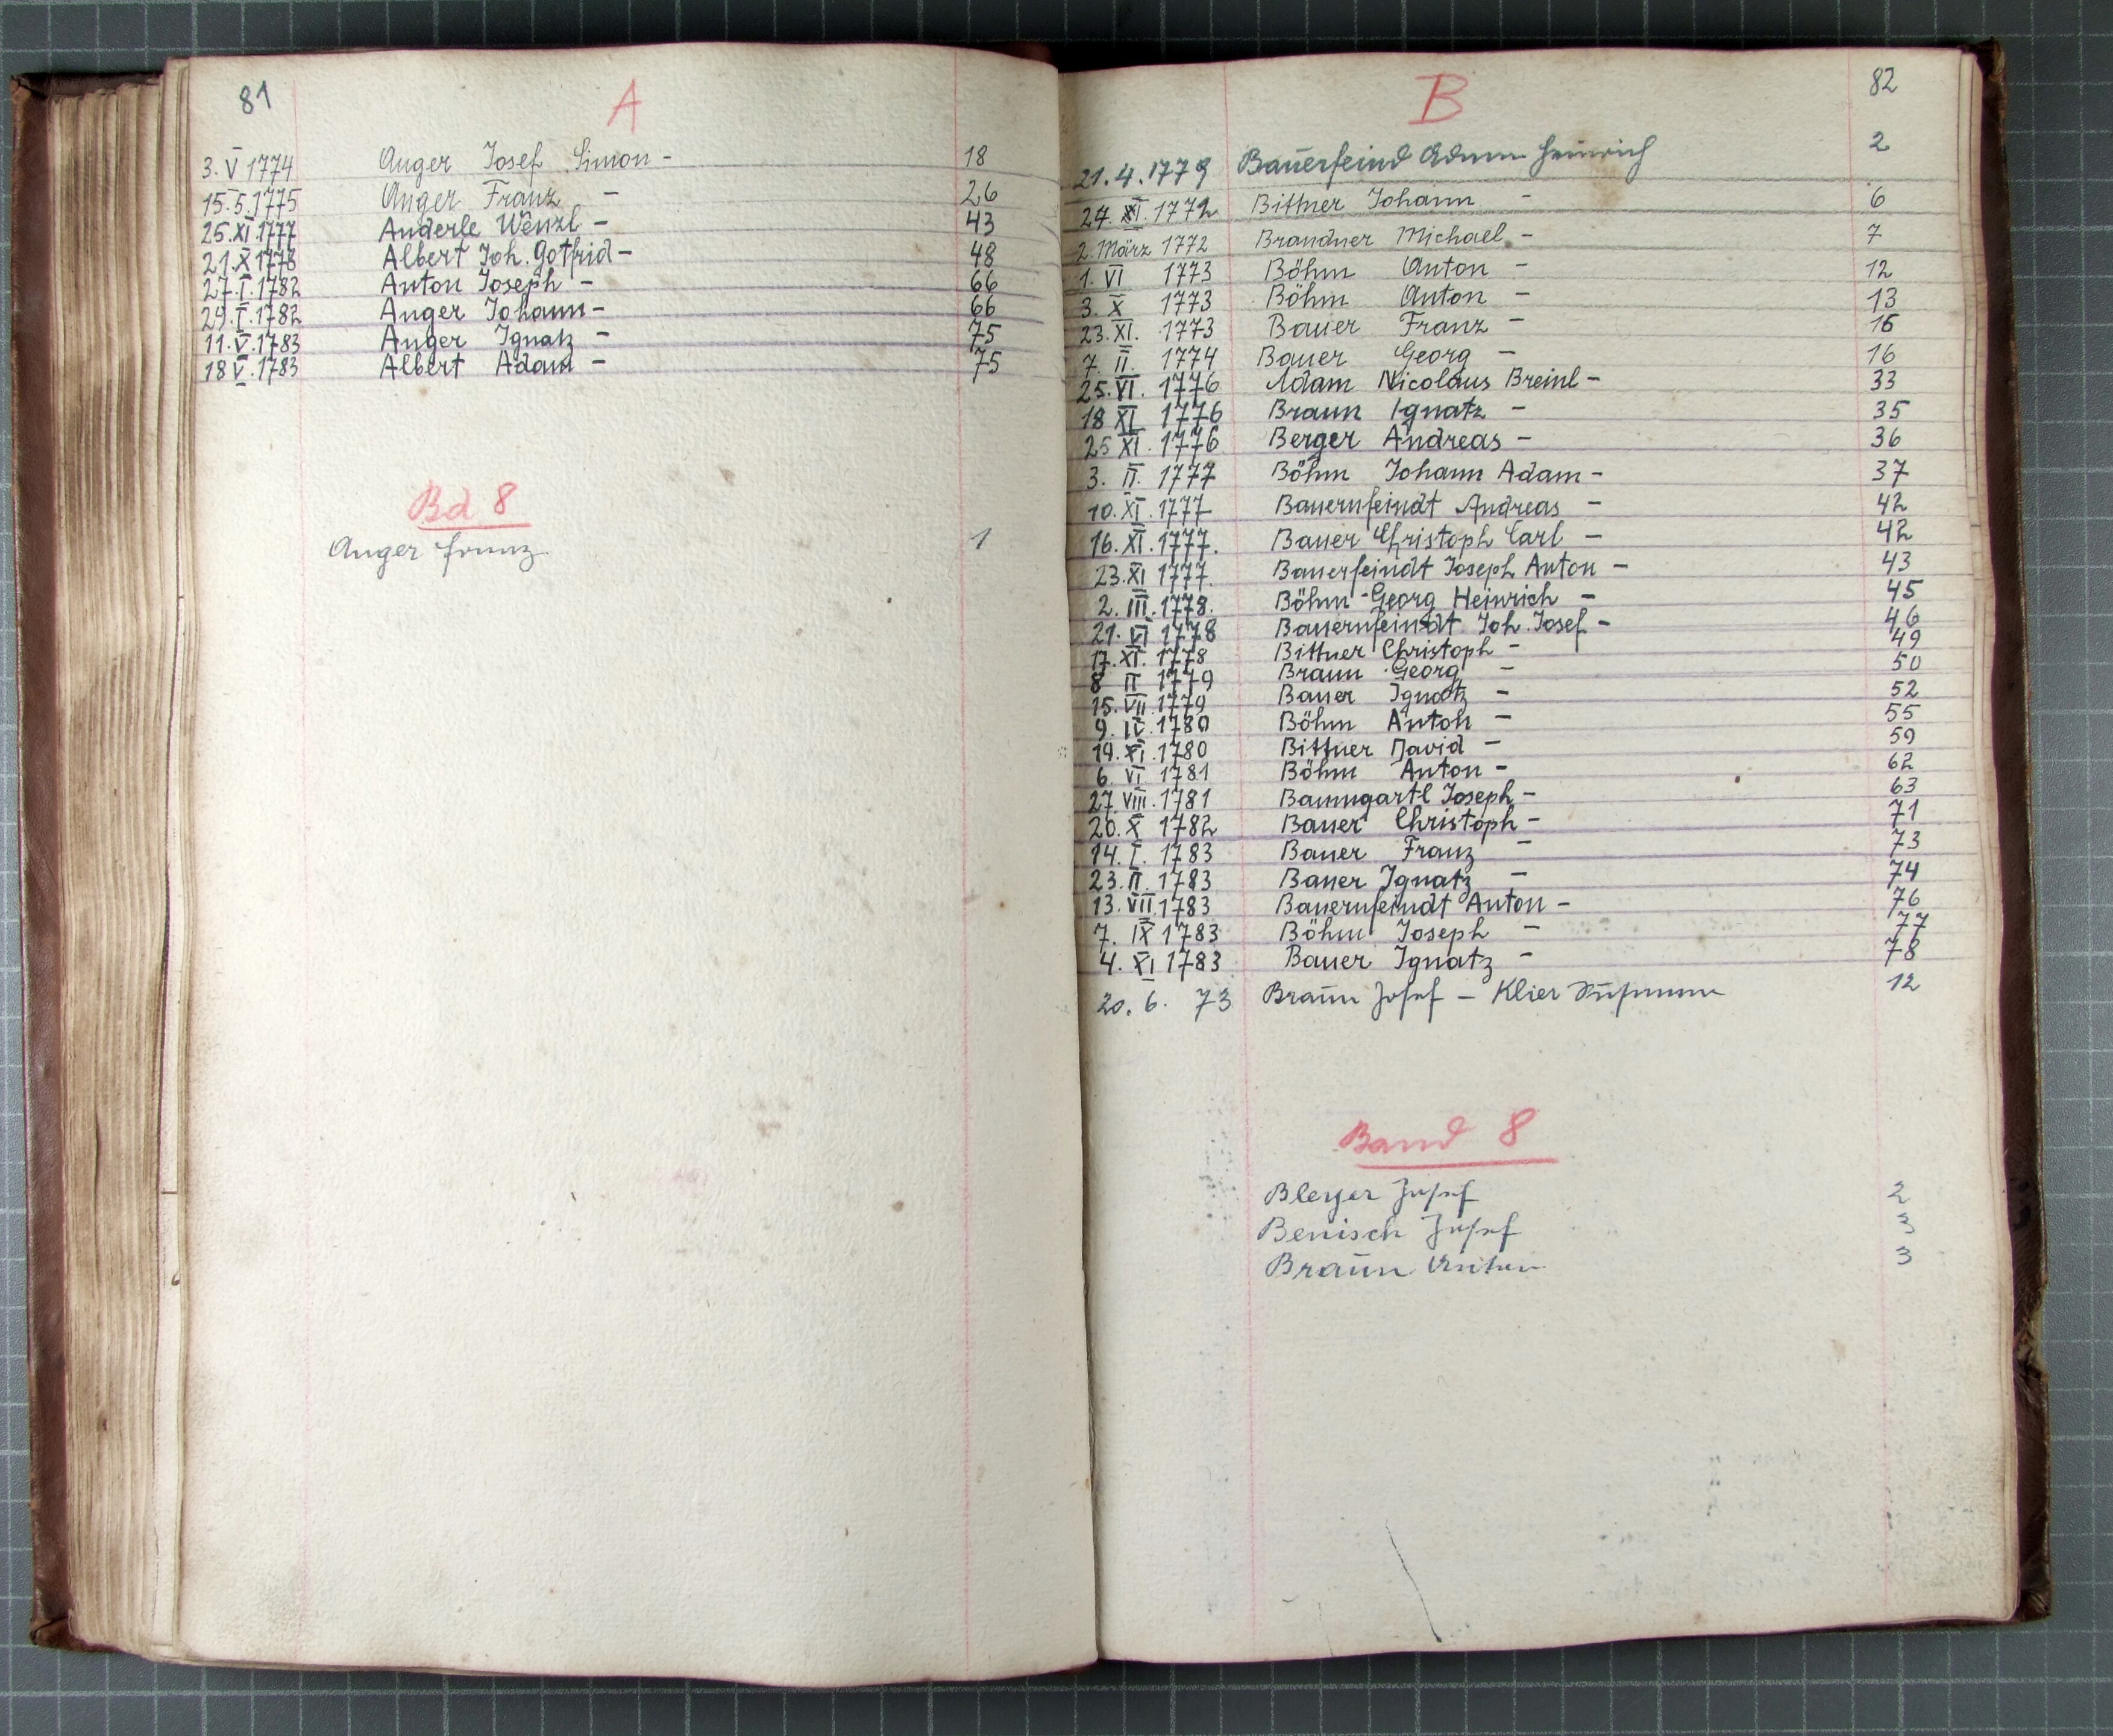 81
A
3. V 1774 Anger Josef Simon - 18
15.5.1775 Anger Franz - 26
25.XI 1777 Anderle Wenzl - 43
21.X 1778 Albert Joh. Gotfrid - 48
27.I.1782 Anton Joseph - 66
29.I.1782 Anger Johann - 66
11.V.1783 Anger Ignatz - 75
18 V.1783 Albert Adam - 75
Bd 8
Anger Franz 1
82
B
21.4.1779 Bauerfeind Adam Heinrich 2
24. XI. 1772 Bittner Johann - 6
2. März 1772 Brandner Michael - 7
1. VI 1773 Böhm Anton - 12
3. X 1773 Böhm Anton - 13
23. XI. 1773 Bauer Franz - 15
7. II. 1774 Bauer Georg - 16
25. VI. 1776 Adam Nicolaus Breinl - 33
18 XI 1776 Braun Ignatz - 35
25 XI. 1776 Berger Andreas - 36
3. II. 1777 Böhm Johann Adam - 37
10. XI. 1777 Bauernfeindt Andreas - 42
16. XI. 1777. Bauer Christoph Carl - 42
23. XI 1777. Bauerfeindt Joseph Anton - 43
2. III. 1778. Böhm Georg Heinrich - 45
21. VI 1778 Bauernfeindt Joh. Josef - 46
17. XI. 1778 Bittner Christoph - 49
8 II 1779 Braun Georg - 50
15. VII 1779 Bauer Ignatz - 52
9. IV. 1780 Böhm Anton - 55
19. XI. 1780 Bittner David - 59
6. VI 1781 Böhm Anton - 62
27 VIII. 1781 Baumgartl Joseph - 63
20. X 1782 Bauer Christoph - 71
14. I. 1783 Bauer Franz - 73
23. II. 1783 Bauer Ignatz - 74
13. VII 1783 Bauernfeindt Anton - 76
7. IX 1783 Böhm Joseph - 77
4. XI 1783 Bauer Ignatz - 78
20. 6. 73 Braun Josef - Klier Susanna 12
Band 8
Bleyer Josef 2
Benisch Josef 3
Braun Anton 3